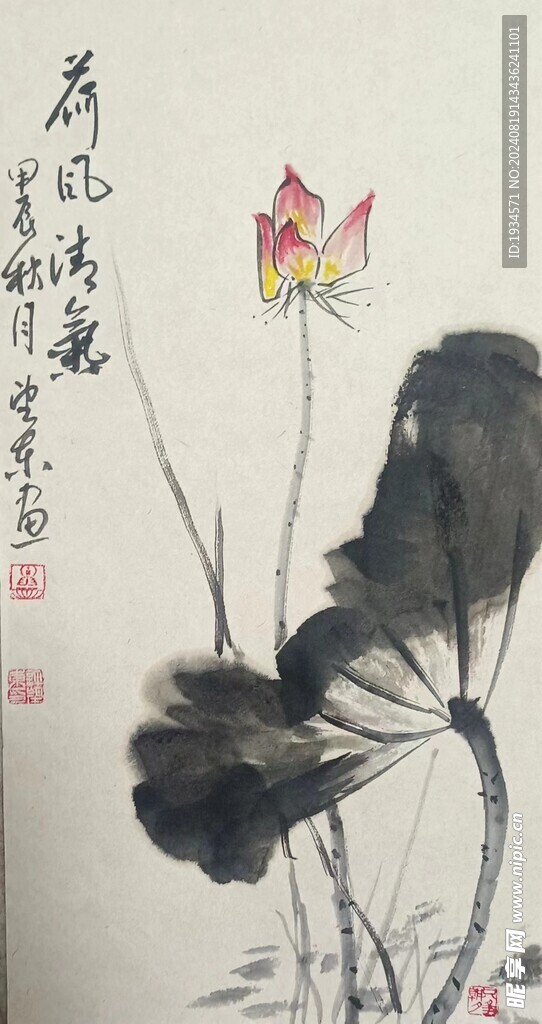 荷风清氣
甲辰秋月 望东画
ID:1934571 NO:20240819143436241101
昵享网 www.nipic.cn